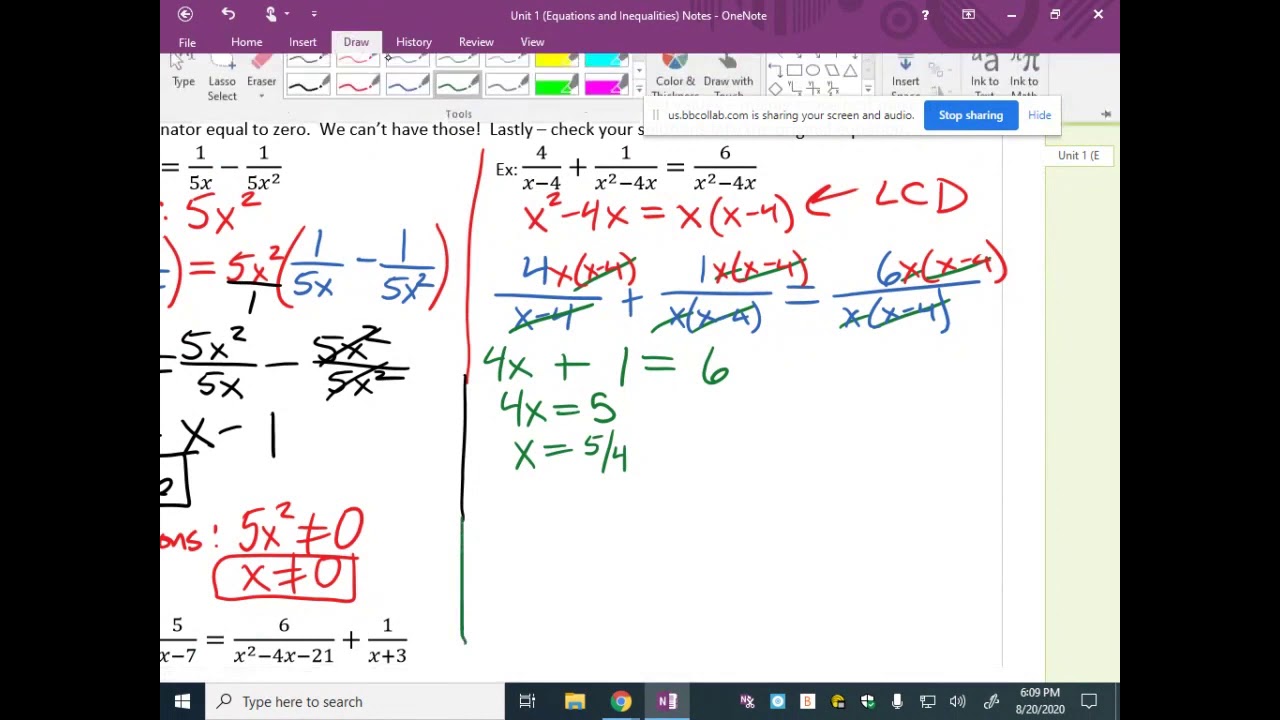 Unit 1 (Equations and Inequalities) Notes - OneNote
?
File Home Insert Draw History Review View
Type Lasso Select Eraser
Color & Draw with Insert Ink to Text Ink to Math
Tools
us.bbcollab.com is sharing your screen and audio. Stop sharing Hide
Unit 1 (E
nator equal to zero. We can't have those! Lastly – check your s
= 1/5x − 1/5x²
: 5x²
) = 5x²/1 (1/5x − 1/5x²)
5x²/5x − 5x²/5x²
x − 1
ons: 5x² ≠ 0
x ≠ 0
5/x−7 = 6/x²−4x−21 + 1/x+3
Ex: 4/x−4 + 1/x²−4x = 6/x²−4x
x² − 4x = x(x−4) ← LCD
4x(x−4)/x−4 + 1x(x−4)/x(x−4) = 6x(x−4)/x(x−4)
4x + 1 = 6
4x = 5
x = 5/4
Type here to search
6:09 PM
8/20/2020